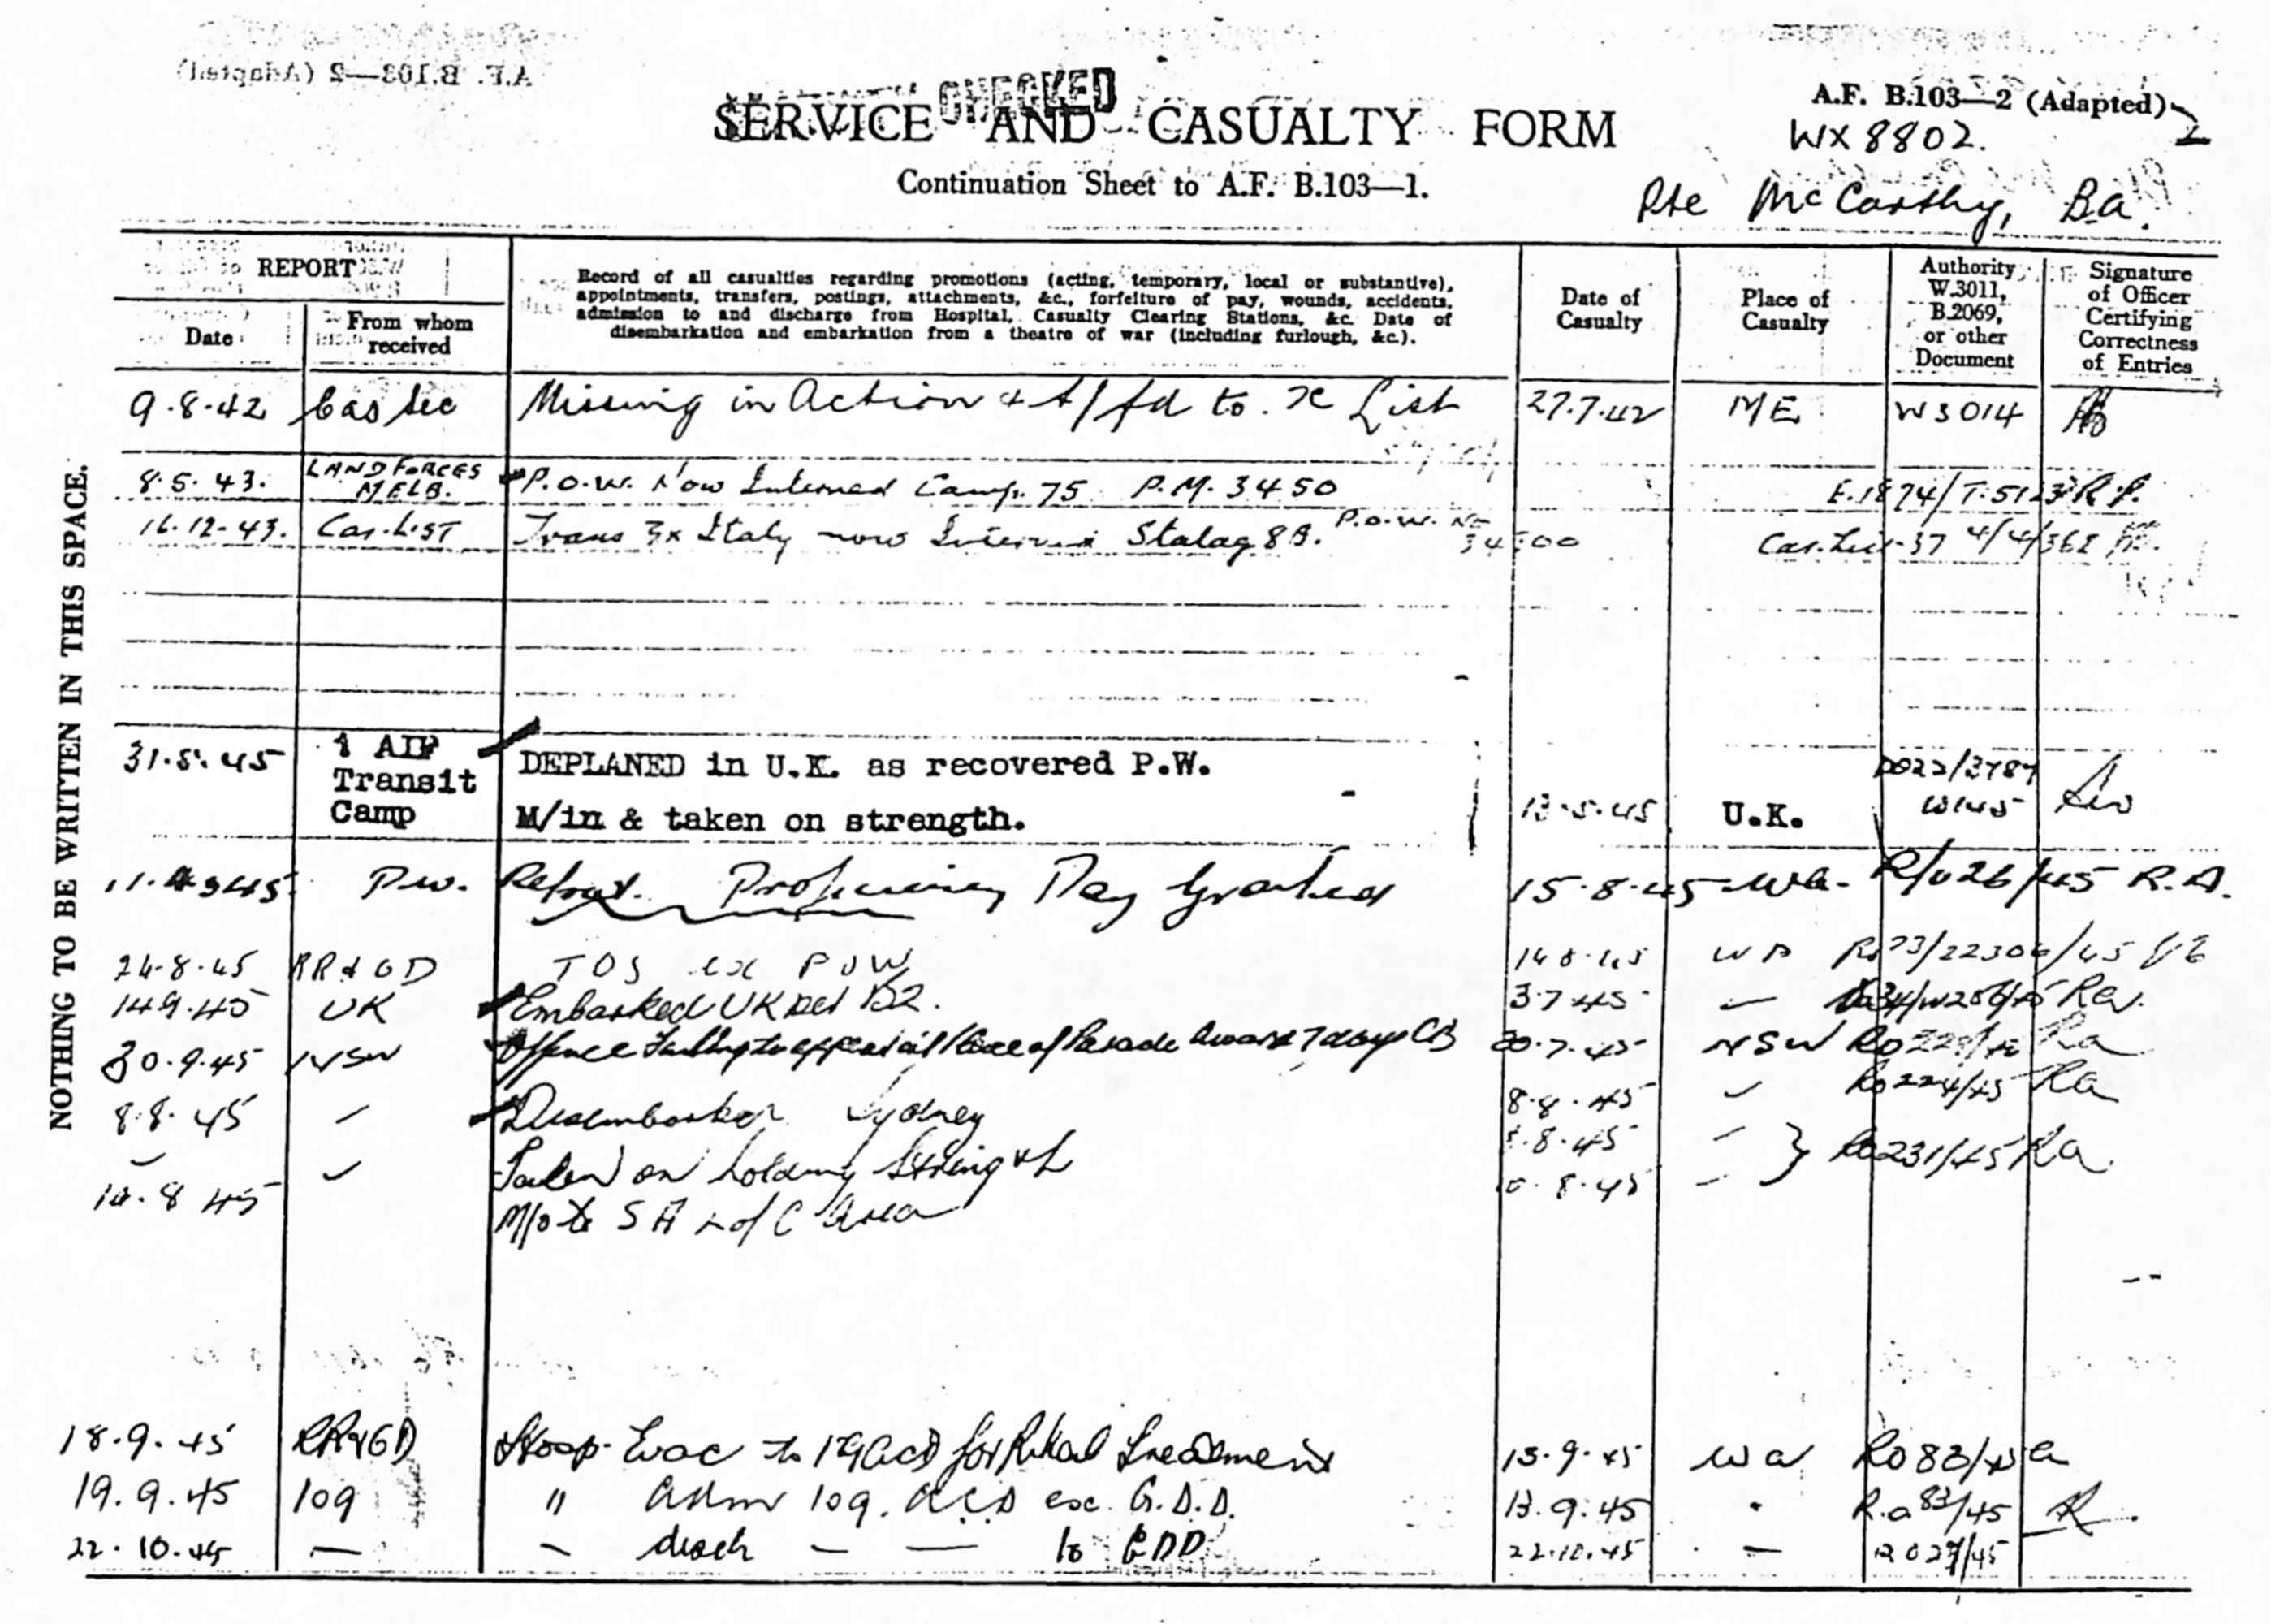 CHECKED
A.F. B.103—2 (Adapted)
SERVICE AND CASUALTY FORM
WX 8802.
Continuation Sheet to A.F. B.103—1.
Pte McCarthy, B.A.
REPORT
Date
From whom received
Record of all casualties regarding promotions (acting, temporary, local or substantive),
appointments, transfers, postings, attachments, &c., forfeiture of pay, wounds, accidents,
admission to and discharge from Hospital, Casualty Clearing Stations, &c. Date of
disembarkation and embarkation from a theatre of war (including furlough, &c.).
Date of Casualty
Place of Casualty
Authority W.3011, B.2069, or other Document
Signature of Officer Certifying Correctness of Entries
NOTHING TO BE WRITTEN IN THIS SPACE.
9.8.42 Cas Sec Missing in Action & t/fd to X List 27.7.42 ME W3014
8.5.43. LAND FORCES MELB. P.O.W. Now Interned Camp. 75 P.M. 3450 E.1874/T.5123 R.P.
16.12.43. Cas. List Trans Ex Italy now Interned Stalag 8B. P.O.W. No 34500 Cas. List 37 4/4/362
31.5.45 1 AIF Transit Camp DEPLANED in U.K. as recovered P.W.
M/in & taken on strength. 13.5.45 U.K.
P.W. Proficiency Pay Granted 15.8.45 WA. R/026/45 R.A.
24.8.45 RR&GD TOS ex POW WA
14.9.45 UK Embarked UK 3.7.45 —
30.9.45 NSW Offence Failing to appear at place of Parade Award 7 days CB 20.7.45 NSW Ra
8.8.45 Disembarked Sydney 8.8.45 Ro 224/45 Ra
Taken on holding Strength 8.8.45
10.8.45 M/o to S A L of C Area 10.8.45 Ro 231/45 Ra.
18.9.45 RR&GD Hosp. Evac to 109 ACD for Treatment 13.9.45 WA Ro 83/45
19.9.45 109 " Adm 109. A.C.D ex. G.D.D. 13.9.45 " R.o 83/45
22.10.45 — disch — — to GDD 22.10.45 —